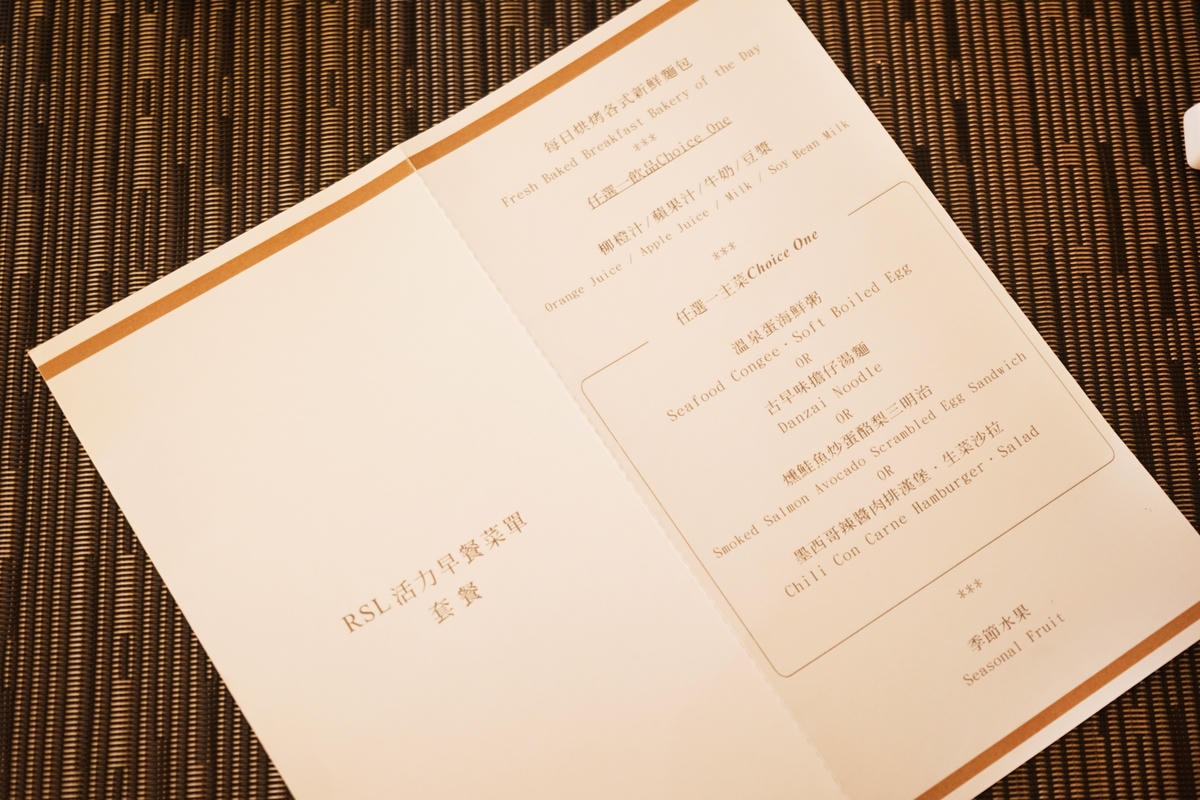 RSL活力早餐菜單
套餐
每日烘烤各式新鮮麵包
Fresh Baked Breakfast Bakery of the Day
***
任選一飲品Choice One
柳橙汁/蘋果汁/牛奶/豆漿
Orange Juice / Apple Juice / Milk / Soy Bean Milk
***
任選一主菜Choice One
溫泉蛋海鮮粥
Seafood Congee·Soft Boiled Egg
OR
古早味擔仔湯麵
Danzai Noodle
OR
燻鮭魚炒蛋酪梨三明治
Smoked Salmon Avocado Scrambled Egg Sandwich
OR
墨西哥辣醬肉排漢堡·生菜沙拉
Chili Con Carne Hamburger·Salad
***
季節水果
Seasonal Fruit